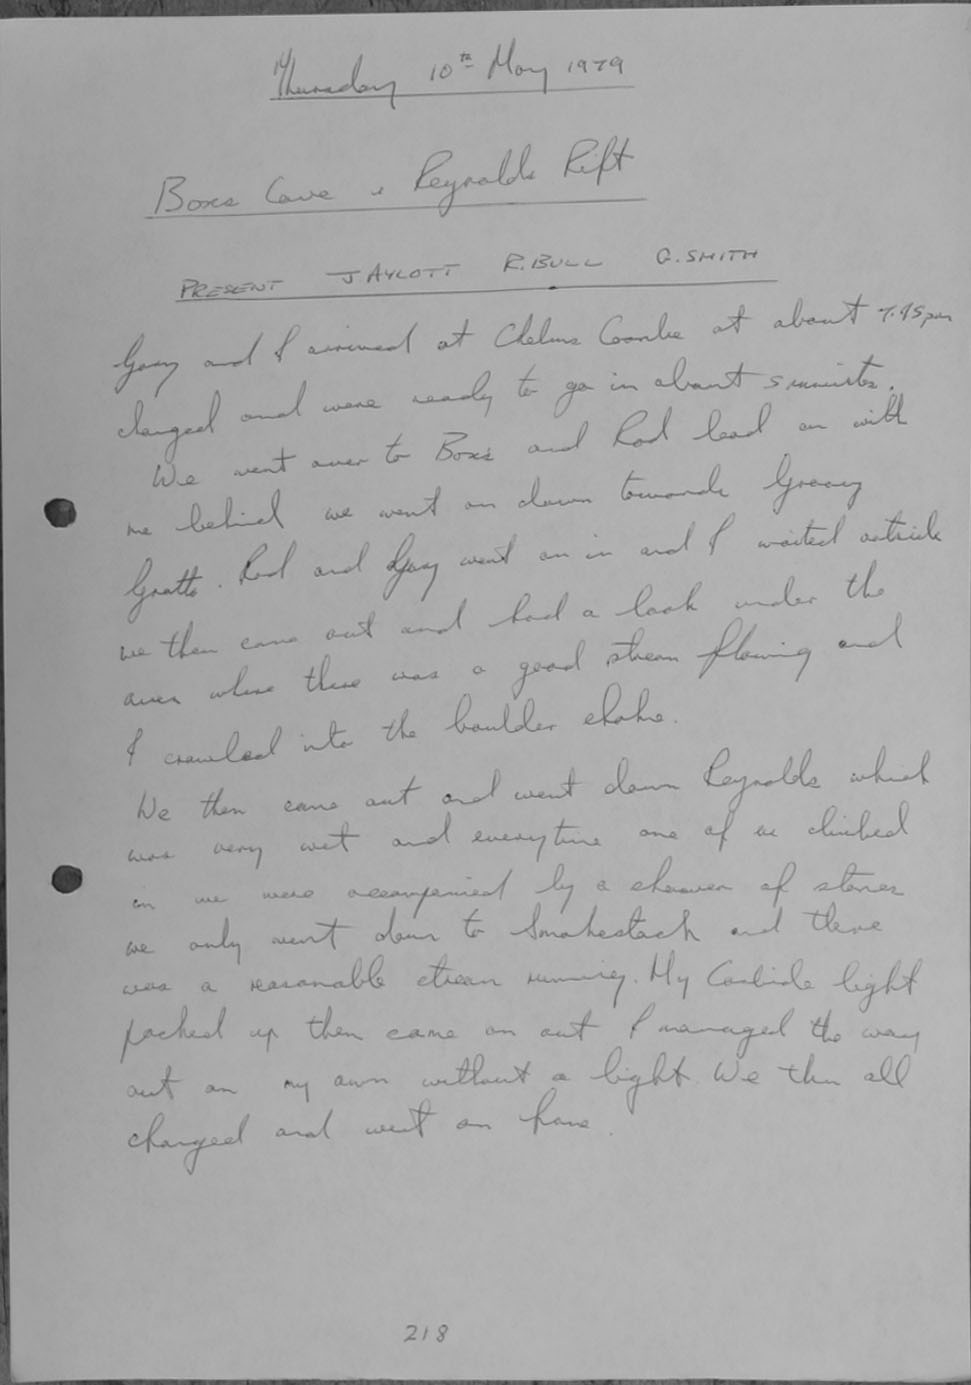 Thursday 10th May 1979
Boxs Cave & Reynolds Rift
PRESENT J AYLOTT R. BULL G. SMITH
Gary and I arrived at Chelms Coombe at about 7.45pm
changed and were ready to go in about 5 minutes.
We went over to Boxs and Rod lead on with
me behind we went on down towards Greasy
Grotto. Rod and Gary went on in and I waited outside
we then came out and had a look under the
aven where there was a good stream flowing and
I crawled into the boulder choke.
We then came out and went down Reynolds which
was very wet and everytime one of us climbed
on we were accompanied by a shower of stones
we only went down to Smokestack and there
was a reasonable stream running. My Carbide light
packed up then came on out I managed the way
out on my own without a light. We then all
changed and went on home.
218